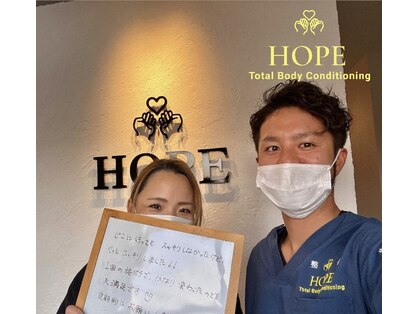 HOPE
Total Body Conditioning
HOPE
どこに行っても スッキリしなかったけど、
スッキリしました!!
1回の施術で、かなり変わったので
大満足です
定期的にお願い
HOPE
Total Body Conditioning